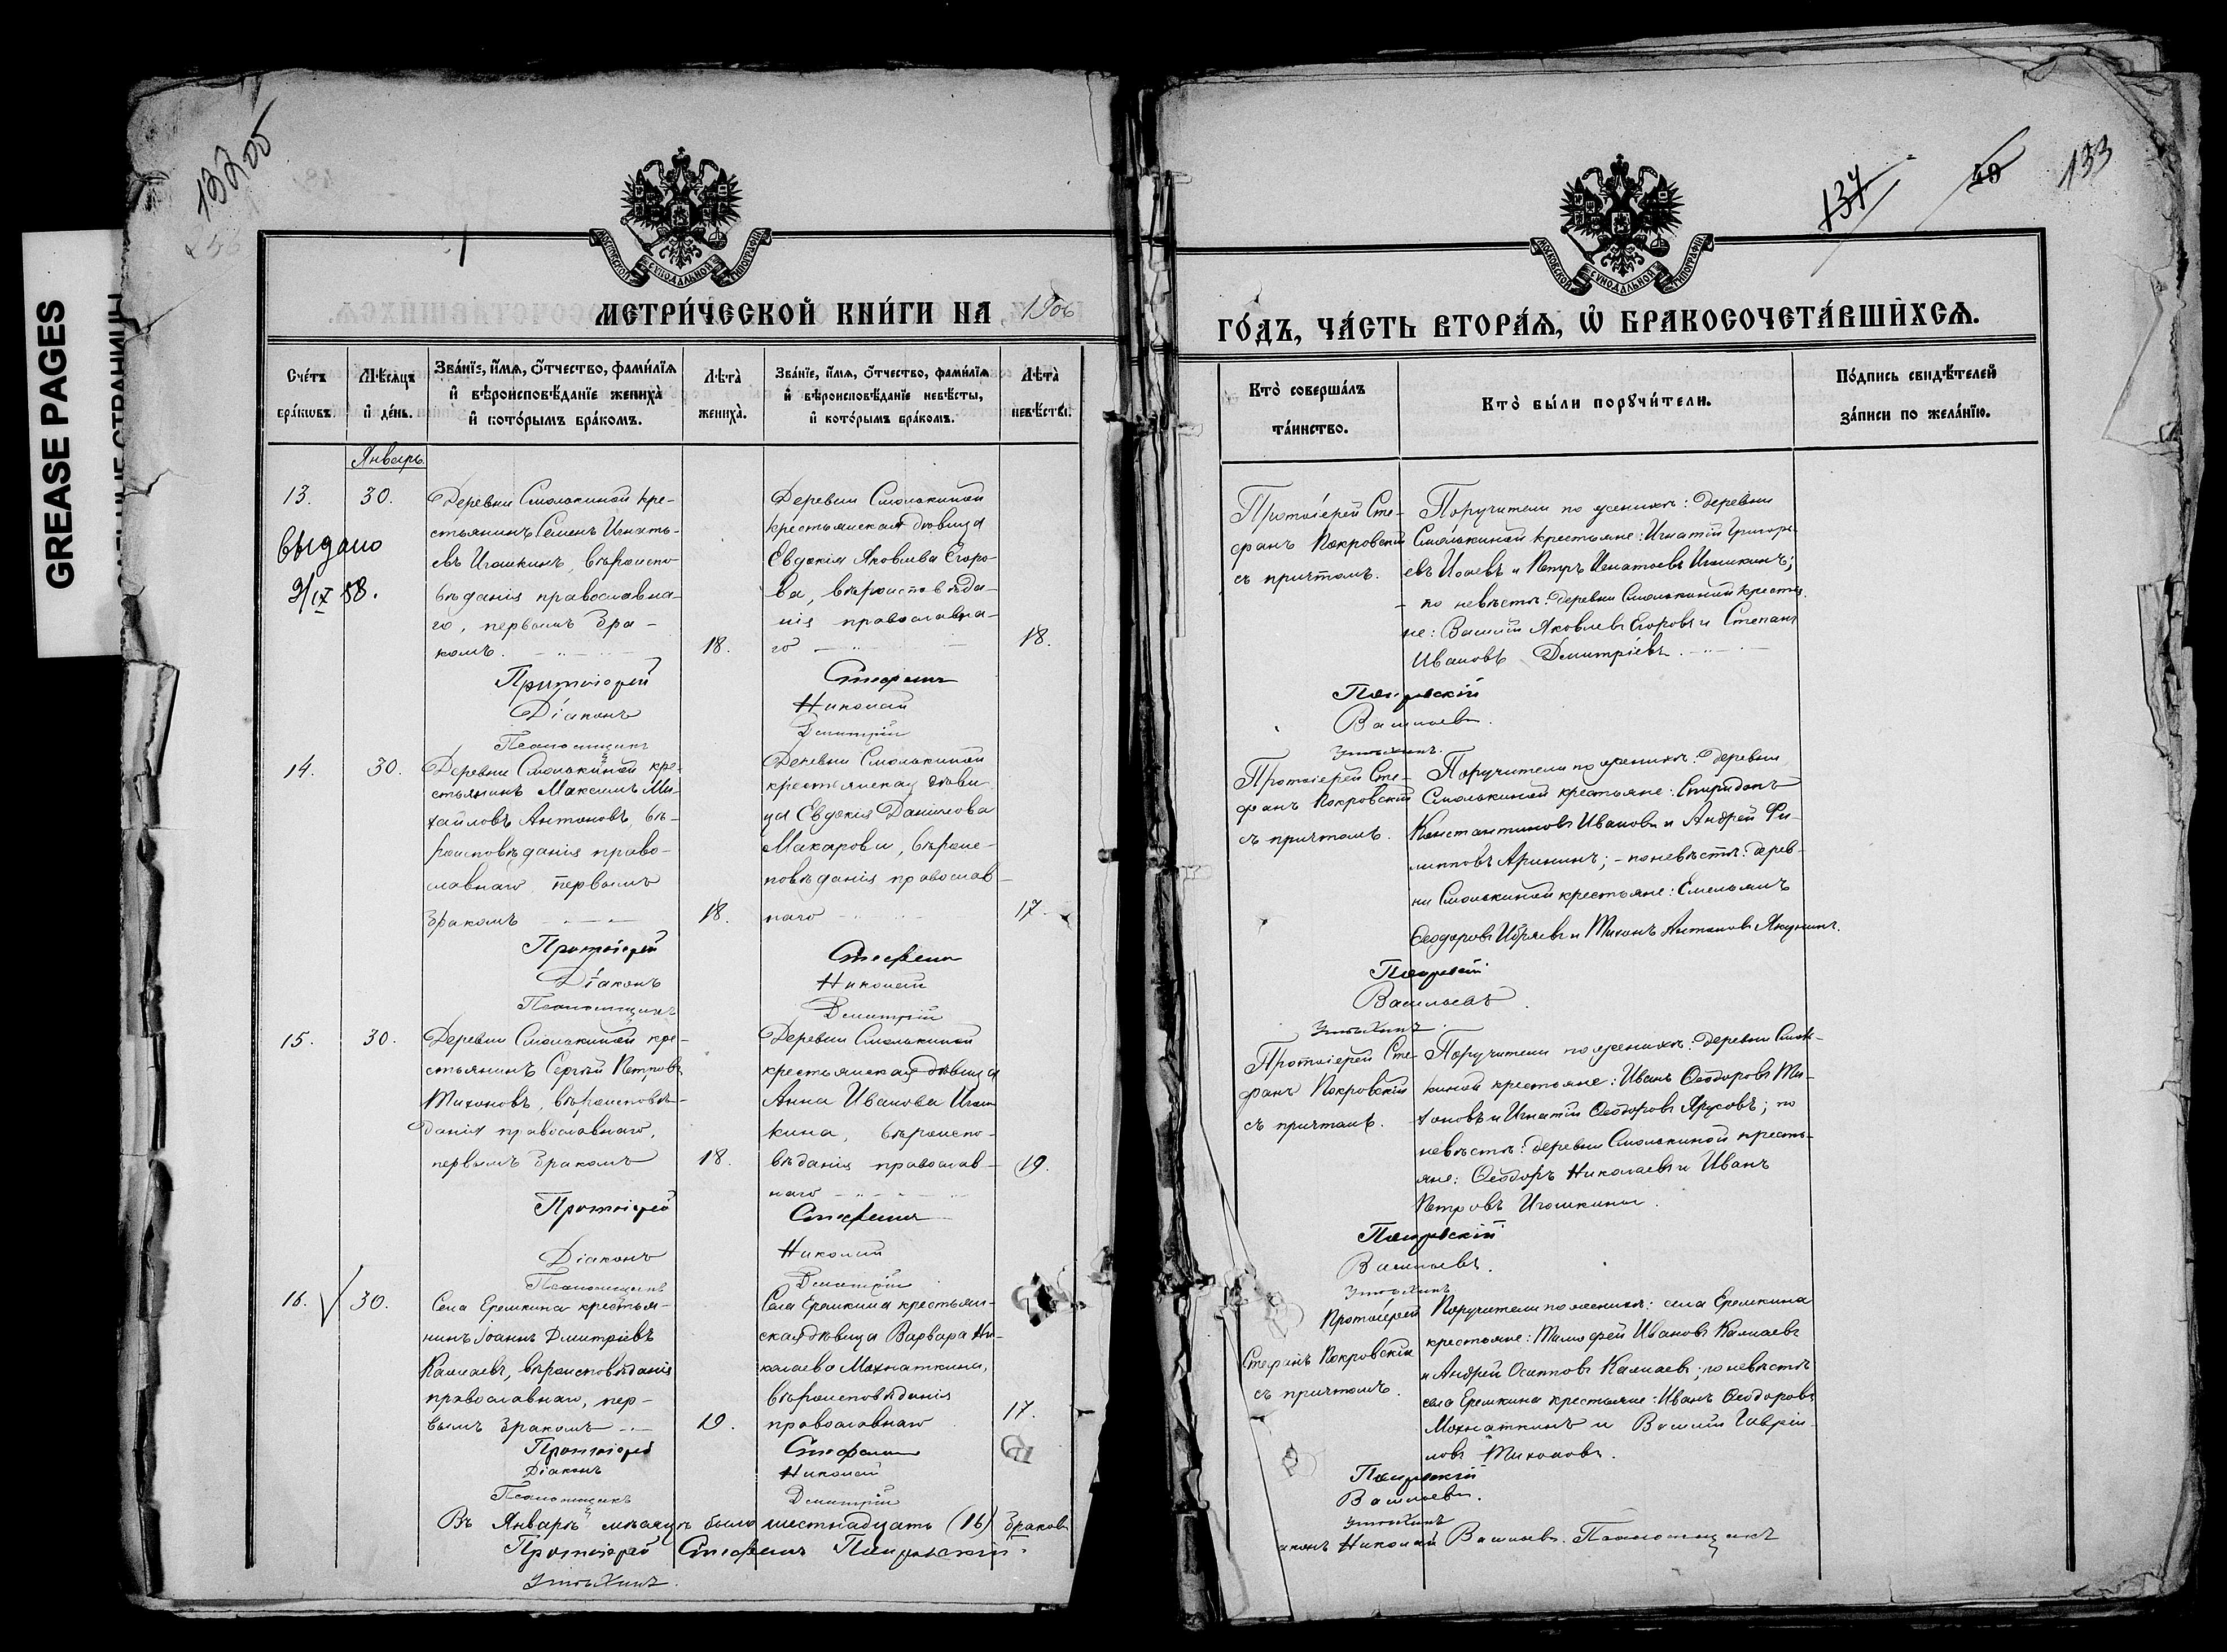 GREASE PAGES
132 об
МОСКОВСКОЙ СѴНОДАЛЬНОЙ ТИПОГРАФІИ
МЕТРИ́ЧЕСКОЙ КНИ́ГИ НА 1906
Сче́тъ бра́ковъ.
Мѣ́сяцъ и҆ де́нь.
Зва́нїе, и҆́мя, о҆́тчество, фами́лїя
и҆ вѣроисповѣ́данїе жениха̀
и҆ кото́рымъ бра́комъ.
Лѣта̀ жениха̀.
Зва́нїе, и҆́мя, о҆́тчество, фами́лїя
и҆ вѣроисповѣ́данїе невѣ́сты,
и҆ кото́рымъ бра́комъ.
Лѣта̀ невѣ́сты.
Январь.
13.
выдано
9/IX 58.
30.
Деревни Смолькиной кре-
стьянинъ Семенъ Игнать-
евъ Игошкинъ, вѣроиспо-
вѣданія православна-
го, первымъ бра-
комъ.
18.
Деревни Смолькиной
крестьянская дѣвица
Евдокія Яковлева Егоро-
ва, вѣроисповѣда-
нія православна-
го
18.
Протоіерей Стефанъ
Діаконъ Николай
Псаломщикъ Димитрій
14.
30.
Деревни Смолькиной кре-
стьянинъ Максимъ Ми-
хайловъ Антоновъ, вѣ-
роисповѣданія право-
славнаго, первымъ
бракомъ
18.
Деревни Смолькиной
крестьянская дѣви
ца Евдокія Данилова
Макарова, вѣроис-
повѣданія православ-
наго
17.
Протоіерей Стефанъ
Діаконъ Николай
Псаломщикъ Димитрій
15.
30.
Деревни Смолькиной кре-
стьянинъ Сергѣй Петровъ
Тихоновъ, вѣроисповѣ-
данія православнаго,
первымъ бракомъ
18.
Деревни Смолькиной
крестьянская дѣвица
Анна Иванова Игош
кина, вѣроиспо-
вѣданія православ-
наго
19.
Протоіерей Стефанъ
Діаконъ Николай
Псаломщикъ Димитрій
16.
30.
Села Еремкина крестья-
нинъ Іоаннъ Димитріевъ
Калмаевъ, вѣроисповѣданія
православнаго, пер-
вымъ бракомъ
19.
Села Еремкина крестьян-
ская дѣвица Варвара Ни-
колаева Мохнаткина,
вѣроисповѣданія
православнаго
17.
Протоіерей Стефанъ
Діаконъ Николай
Псаломщикъ Димитрій
Въ Январѣ мѣсяцѣ было шестнадцать (16) браковъ
Протоіерей Стефанъ Покровскій.
133
49
МОСКОВСКОЙ СѴНОДАЛЬНОЙ ТИПОГРАФІИ
ГО́ДЪ, ЧА́СТЬ ВТОРА́Я, Ѡ҆ БРАКОСОЧЕТА́ВШИХСЯ.
Кто̀ соверша́лъ
та́инство.
Кто̀ бы́ли порꙋчи́тели.
По́дпись свидѣ́телей
за́писи по жела́нїю.
Протоіерей Сте-
фанъ Покровскій
съ причтомъ.
Поручители по женихѣ: деревни
Смолькиной крестьяне: Игнатій Григорь
евъ и Петръ Игнатьевъ Игошкинъ;
по невѣстѣ: деревни Смолькиной крестья
не: Василій Яковлевъ Егоровъ и Степанъ
Ивановъ Димитріевъ.
Покровскій
Васильевъ.
Протоіерей Сте-
фанъ Покровскій
съ причтомъ.
Поручители по женихѣ: деревни
Смолькиной крестьяне: Спиридонъ
Константиновъ Ивановъ и Андрей Фи-
липповъ Арининъ; - по невѣстѣ: дерев-
ни Смолькиной крестьяне: Емельянъ
Ѳеодоровъ и Тихонъ Антоновъ Якунинъ.
Покровскій
Васильевъ.
Протоіерей Сте-
фанъ Покровскій
съ причтомъ.
Поручители по женихѣ: деревни Смоль-
киной крестьяне: Иванъ Ѳеодоровъ Ти-
хоновъ и Игнатій Ѳеодоровъ Ярусовъ; по
невѣстѣ: деревни Смолькиной кресть-
яне: Ѳеодоръ Николаевъ и Иванъ
Петровъ Игошкины.
Покровскій
Васильевъ.
Протоіерей
Стефанъ Покровскій
съ причтомъ.
Поручители по женихѣ: села Еремкина
крестьяне: Тимофей Ивановъ Калмаевъ
и Андрей Осиповъ Калмаевъ; по невѣстѣ
села Еремкина крестьяне: Иванъ Ѳеодоровъ
Мохнаткинъ и Василій Гаврiи-
ловъ Тихоновъ.
Покровскій
Васильевъ.
аконъ Николай Васильевъ. Псаломщикъ